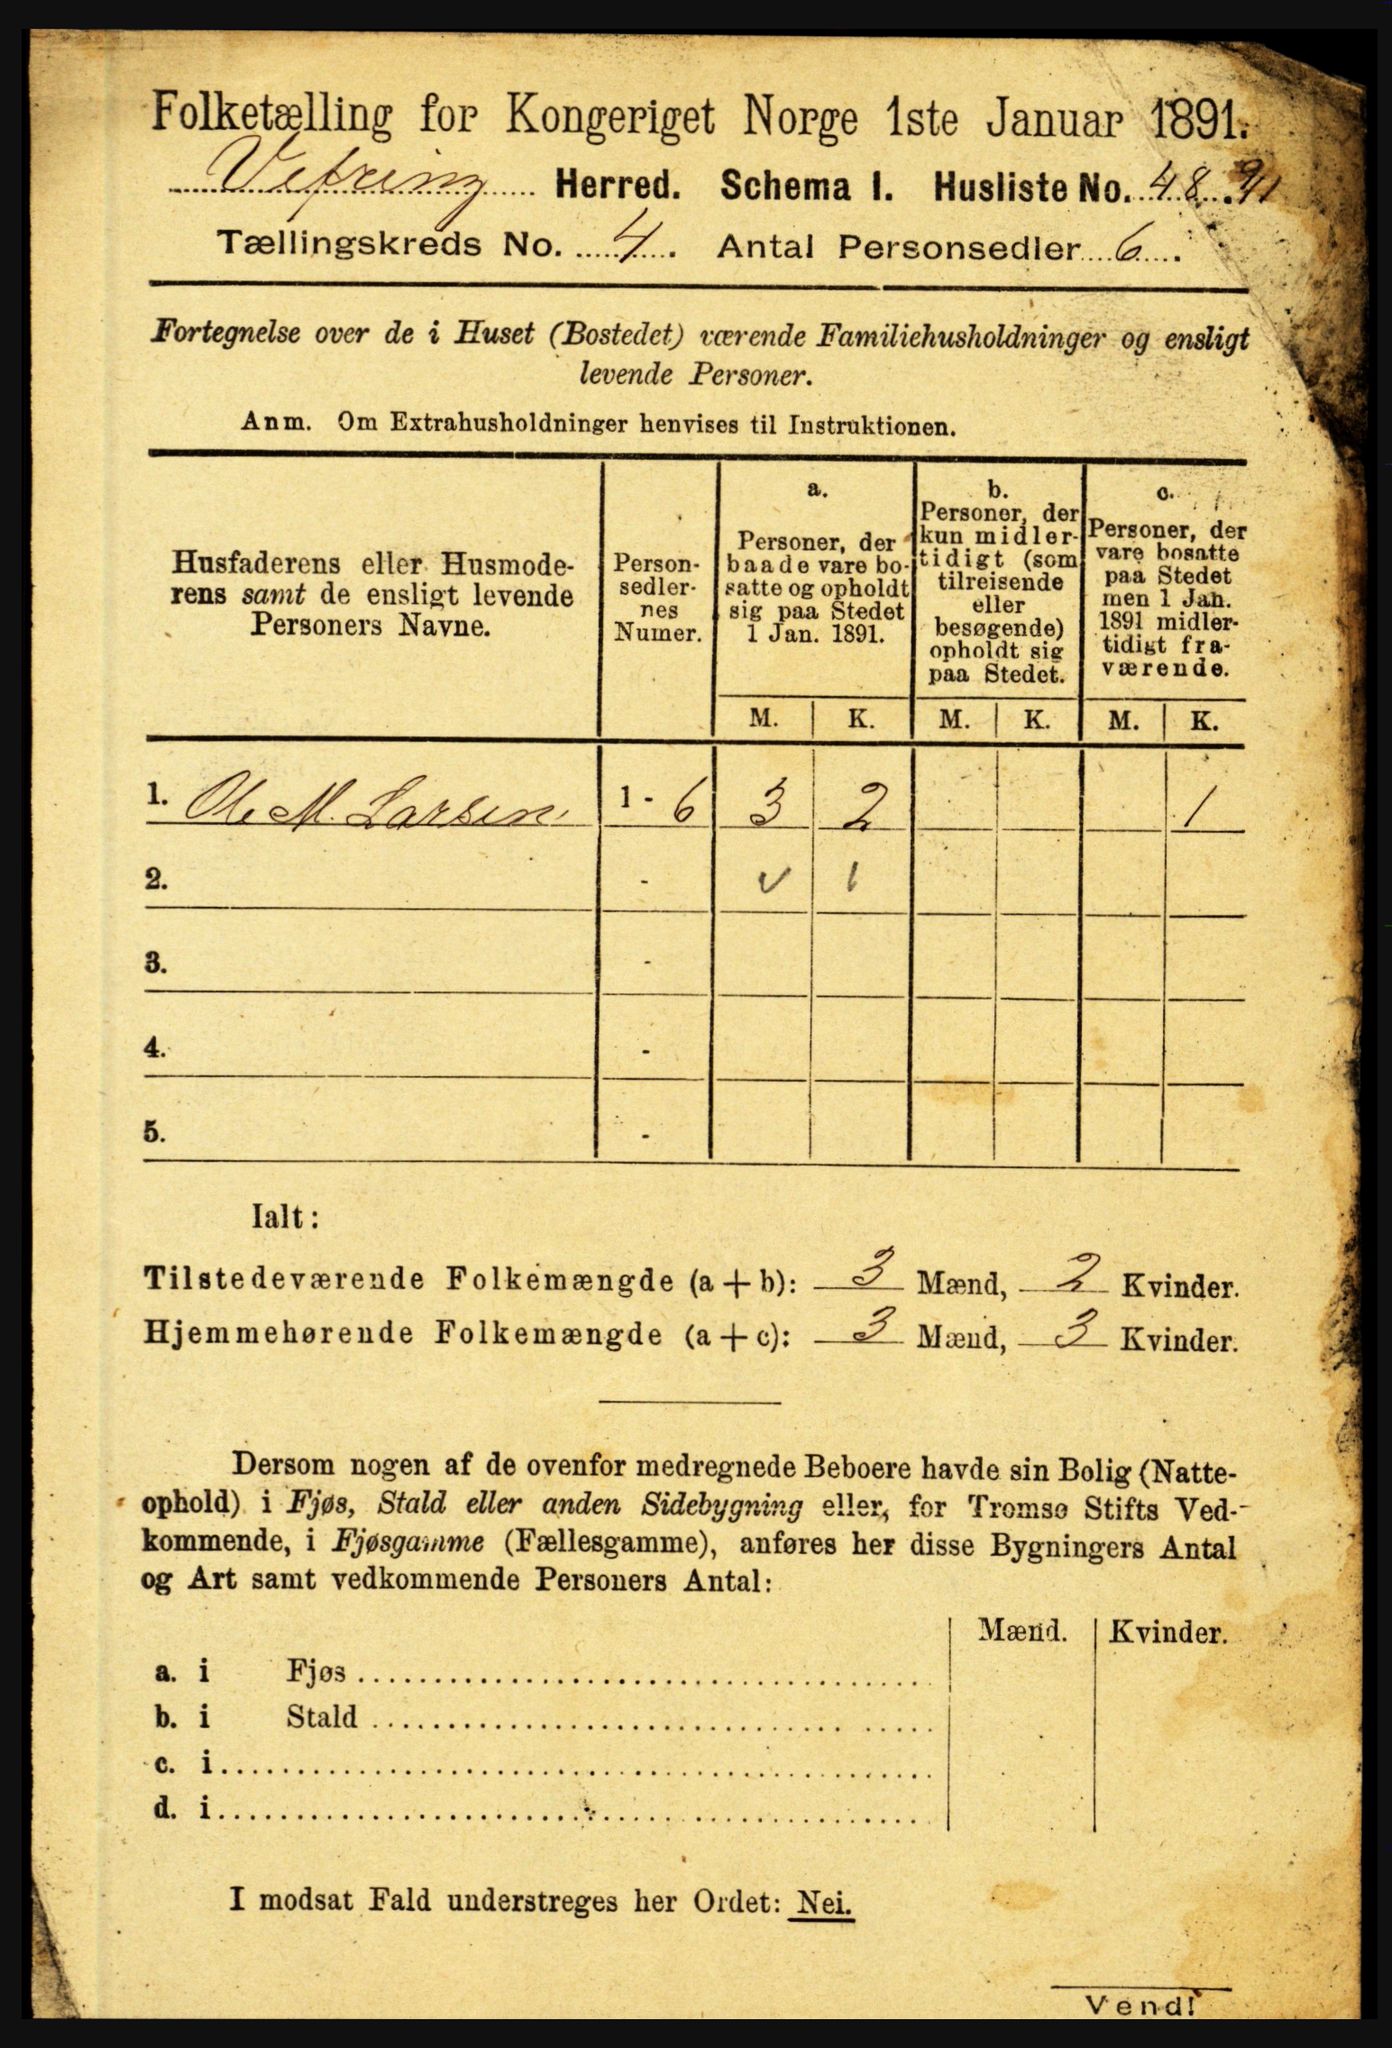 Folketælling for Kongeriget Norge 1ste Januar 1891.
Vefsen Herred. Schema I. Husliste No. 48.
Tællingskreds No. 4. Antal Personsedler 6.
Fortegnelse over de i Huset (Bostedet) værende Familiehusholdninger og ensligt
levende Personer.
Anm. Om Extrahusholdninger henvises til Instruktionen.
Husfaderens eller Husmode-
rens samt de ensligt levende
Personers Navne.
Person-
sedler-
nes
Numer.
a.
Personer, der
baade vare bo-
satte og opholdt
sig paa Stedet
1 Jan. 1891.
b.
Personer, der
kun midler-
tidigt (som
tilreisende
eller
besøgende)
opholdt sig
paa Stedet.
c.
Personer, der
vare bosatte
paa Stedet
men 1 Jan.
1891 midler-
tidigt fra-
værende.
M. K. M. K. M. K.
1. Ole M. Larsen 1 - 6 3 2 1
2. - v 1
3. -
4. -
5. -
Ialt:
Tilstedeværende Folkemængde (a + b): 3 Mænd, 2 Kvinder.
Hjemmehørende Folkemængde (a + c): 3 Mænd, 3 Kvinder.
Dersom nogen af de ovenfor medregnede Beboere havde sin Bolig (Natte-
ophold) i Fjøs, Stald eller anden Sidebygning eller, for Tromsø Stifts Ved-
kommende, i Fjøsgamme (Fællesgamme), anføres her disse Bygningers Antal
og Art samt vedkommende Personers Antal:
Mænd. Kvinder.
a. i Fjøs
b. i Stald
c. i
d. i
I modsat Fald understreges her Ordet: Nei.
Vend!